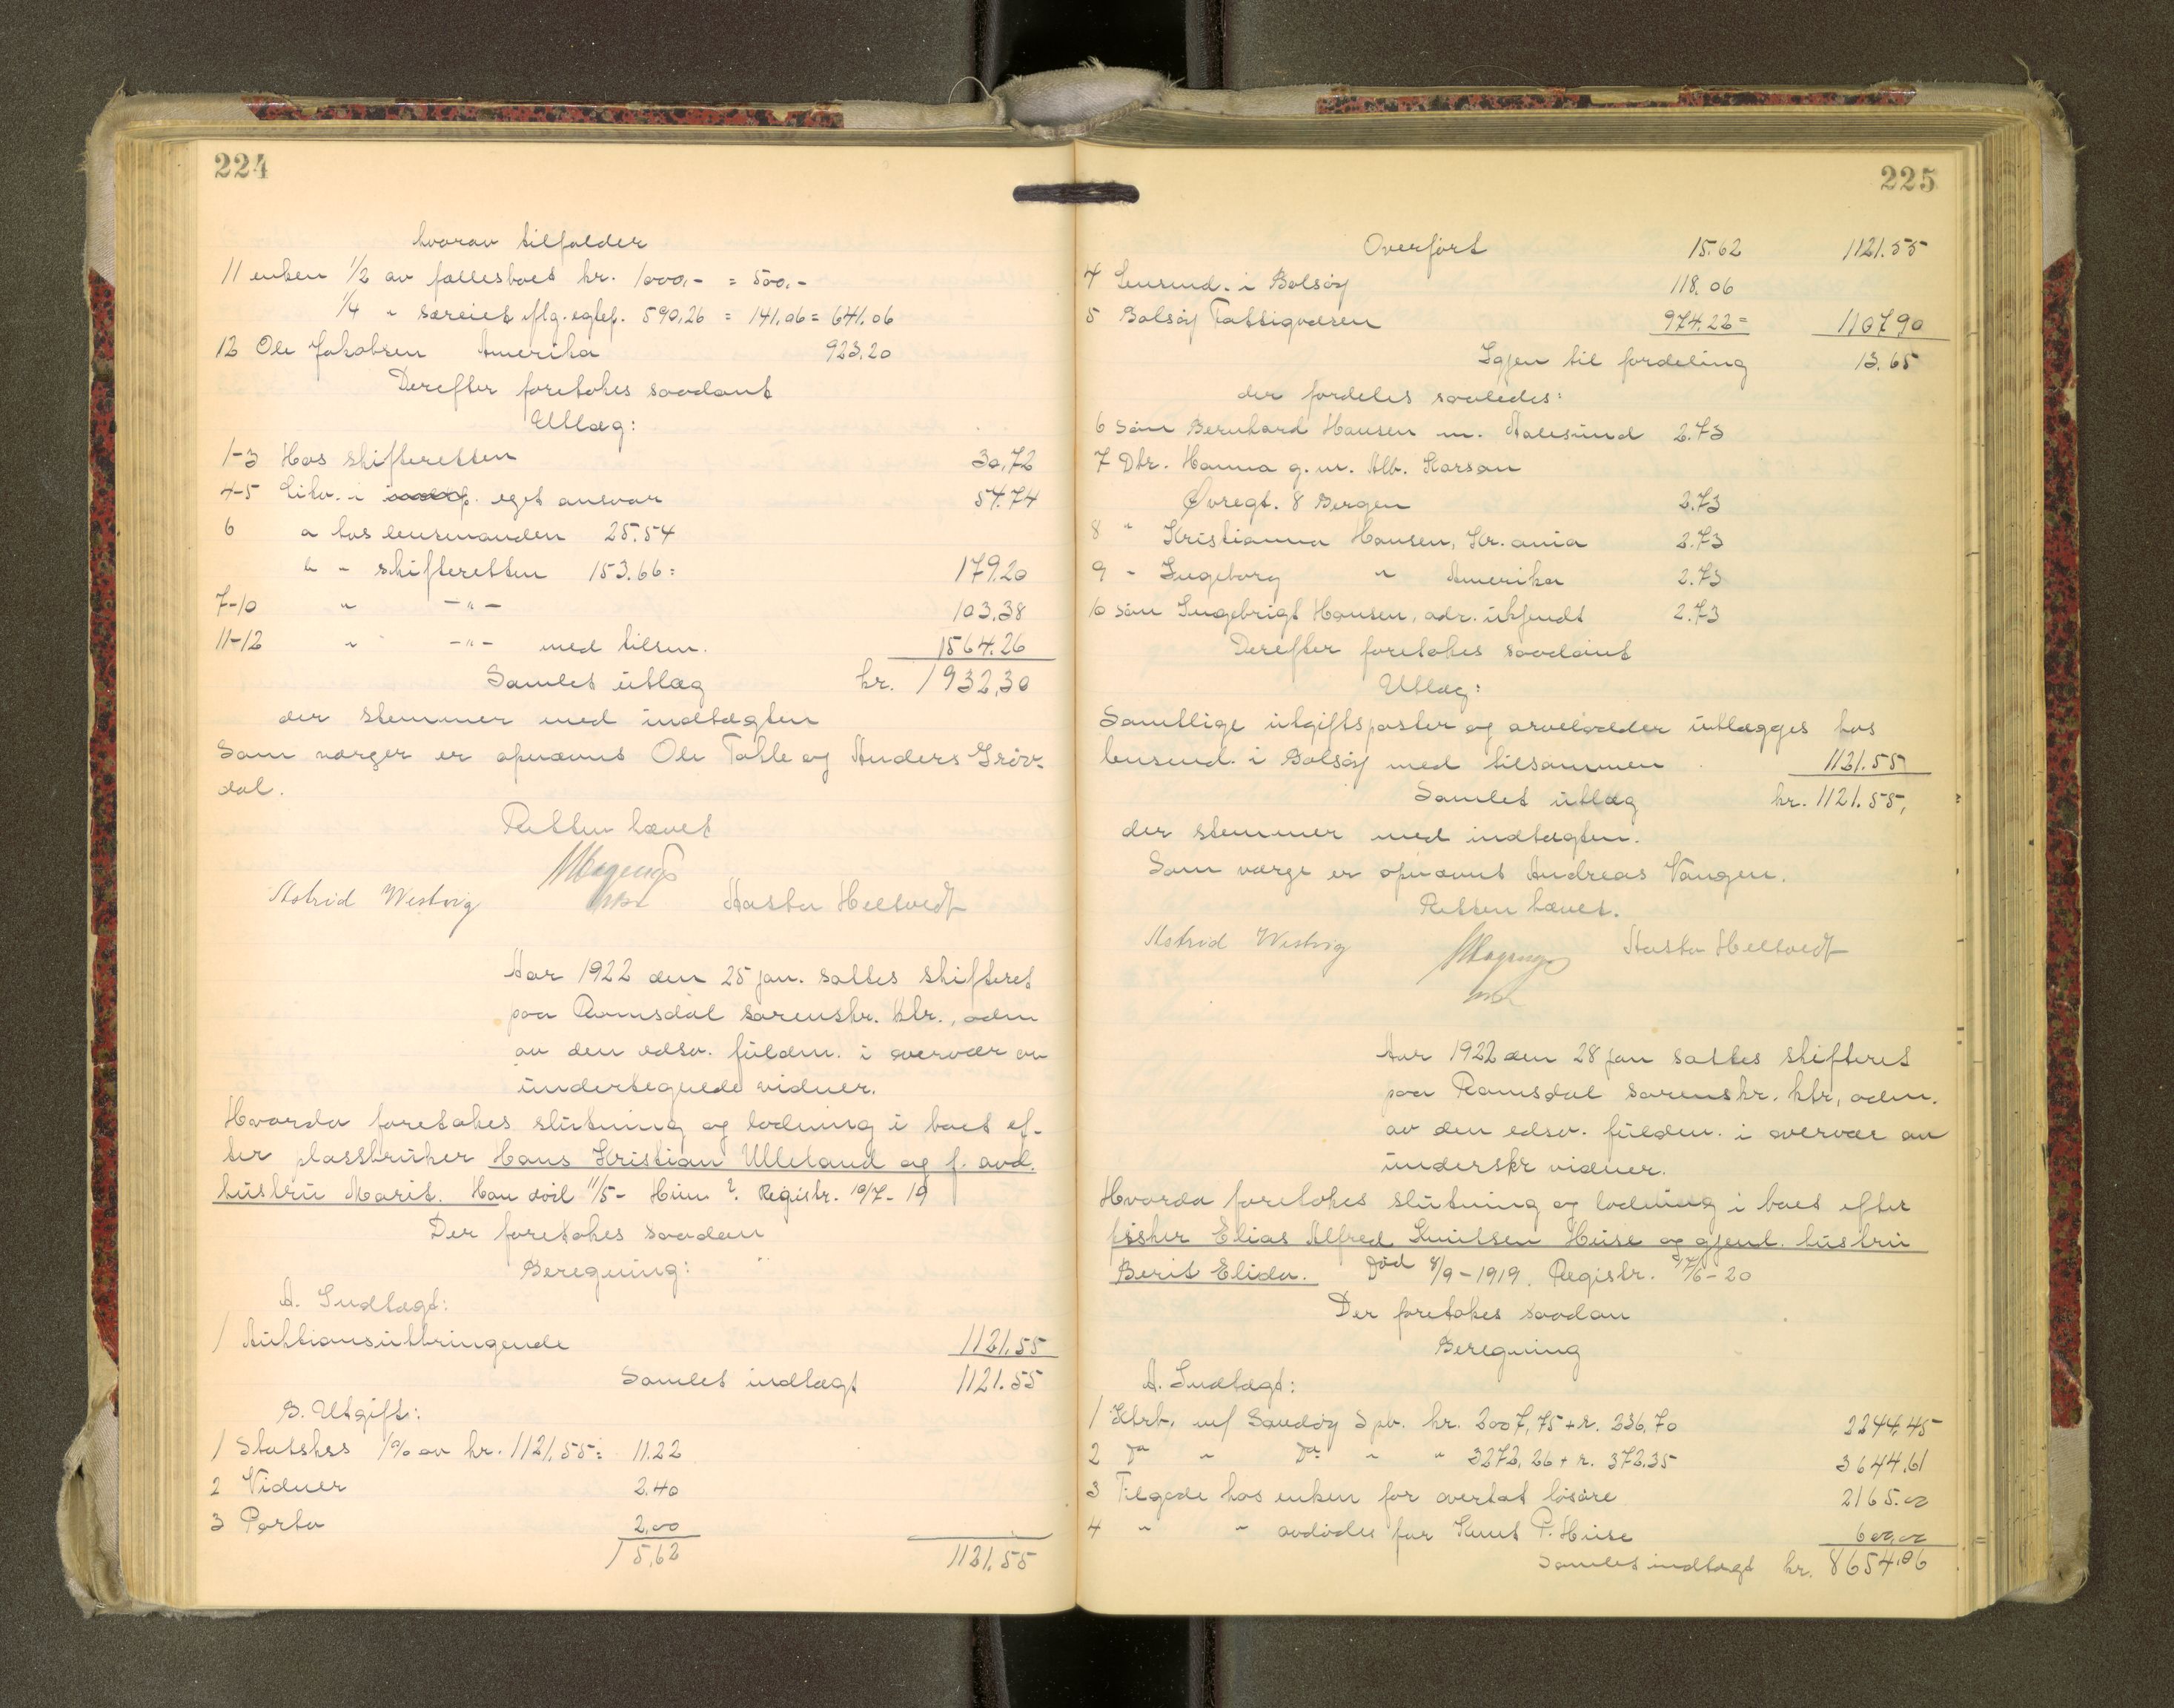 224
hvorav tilfalder
11 enken 1/2 av fællesboet kr. 1000,- = 500,-
1/4 " særeiet iflg. egtef. 590,26 = 141,06 = 641.06
12 Ole Jakobsen Amerika 923.20
Derefter foretokes saadant
Utlæg:
1-3 Hos skifteretten 30,72
4-5 Likv. i eget ansvar 57.74
6 a hos lensmanden 25.54
b - skifteretten 153.66 = 179.20
7-10 " -"- 103.38
11-12 " -"- med tilsm. 1564.26
Samlet utlæg kr. 1932,30
der stemmer med indtægten
Som værger er opnævnt Ole Tokle og Anders Gröv-
dal.
Retten hævet
Astrid Westvig Aasta Heltvedt
Aar 1922 den 25 jan. sattes skifteret
paa Romsdal sorenskr. ktr., adm
av den edsv. fuldm. i overvær av
undertegnede vidner.
Hvorda foretokes slutning og lodning i boet ef-
ter plassbruker Hans Kristian Ulleland og f. avd.
hustru Marit. Han död 11/5- Hun ?. Registr. 10/7-19
Der foretokes saadan
Beregning:
A. Indtægt:
1 Auktionsutbringende 1121.55
Samlet indtægt 1121.55
B. Utgift:
1 Statskss 1% av kr. 1121,55 = 11.22
2 Vidner 2.40
3 Porto 2,00
15,62 1121.55
225
Overført 15.62 1121.55
4 Lensmd. i Bolsöy 118.06
5 Bolsöy Fattigvæsen 974.22 = 1107 90
Igjen til fordeling 13.65
der fordeles saaledes:
6 Sön Bernhard Hansen m. Aalesund 2.73
7 Dtr. Hanna g.m. Alb. Karson
Øvregt. 8 Bergen 2.73
8 " Kristianna Hansen, Kr.ania 2.73
9 - Ingeborg " Amerika 2.73
10 sön Ingebrigt Hansen, adr. ukjendt 2.73
Derefter foretokes saadant
Utlæg:
Samtlige utgiftsposter og arvelodder utlægges hos
lensmd. i Bolsöy med tilsammen 1121.55
Samlet utlæg kr. 1121.55,
der stemmer med indtægten.
Som værge er opnævnt Andreas Vangen.
Retten hævet.
Astrid Westvig Aasta Heltvedt
Aar 1922 den 28 jan sattes skifteret
paa Romsdal sorenskr. ktr, adm.
av den edsv. fuldm. i overvær av
underskr vidner.
Hvorda foretokes slutning og lodning i boet efter
fisker Elias Alfred Knutsen Huse og gjenl. hustru
Berit Elida. Död 8/9-1919. Registr. 17/6-20
Der foretokes saadan
Beregning
A. Indtægt:
1 Ktrb. m/ Sandöy Spb. kr. 2007,75 + r. 236,70 2244.45
2 Do " Do " " 3272,26 + r. 372.35 3644.61
3 Tilgode hos enken for overtat lösöre 2165.00
4 " " avdödes far Knut P. Huse 600,00
Samlet indtægt kr. 8654,06